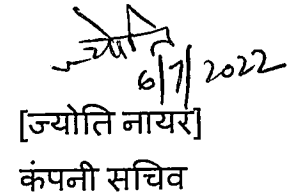 ज्योति
6/7/2022
[ज्योति नायर]
कंपनी सचिव